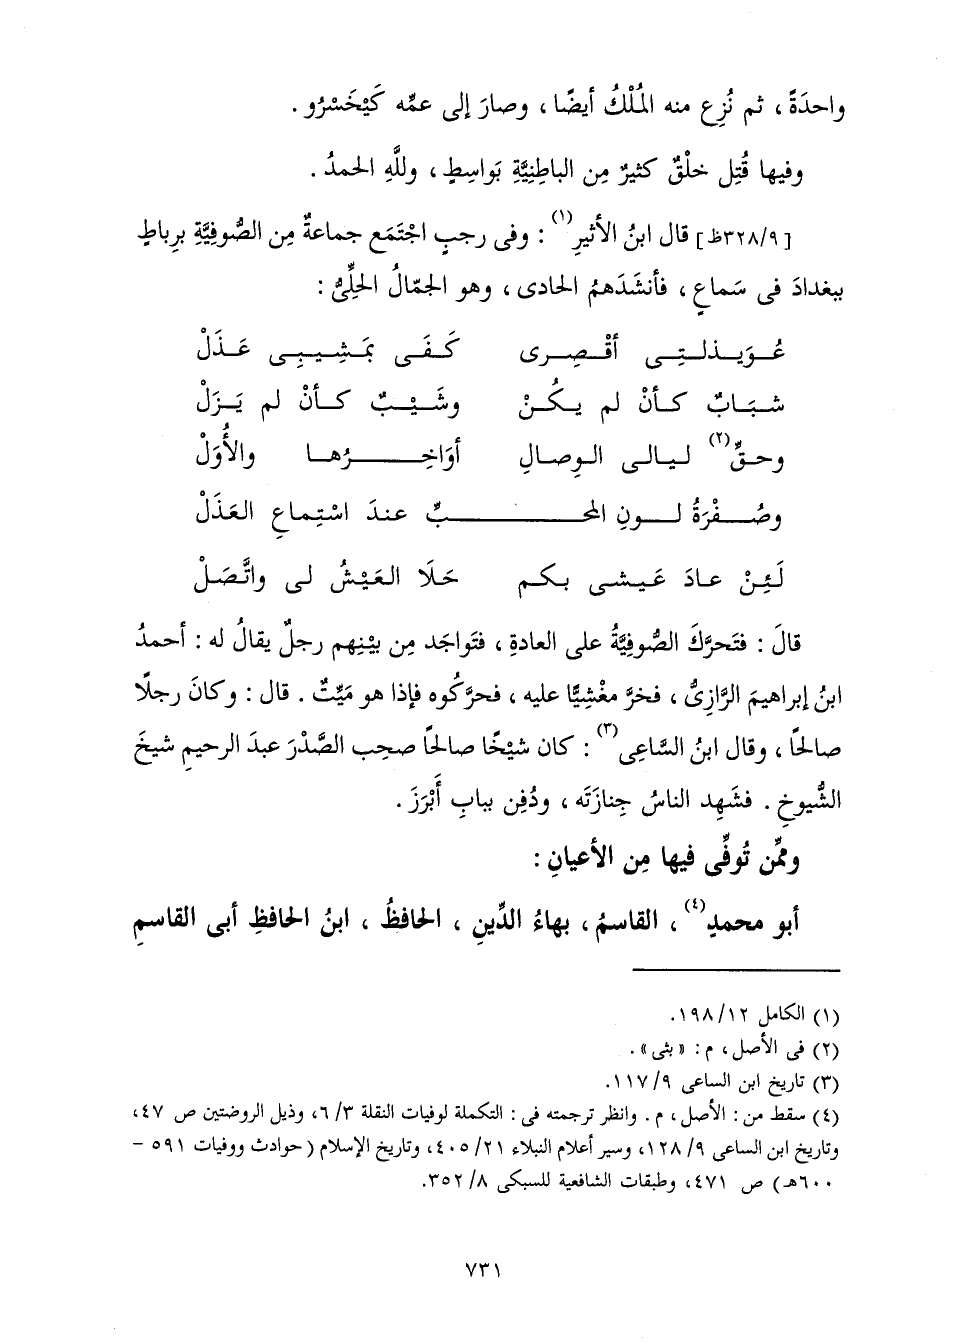 واحدَةً ، ثم نُزِع منه المُلْكُ أيضًا ، وصارَ إلى عمِّه كَيْخَسْرُو .
وفيها قُتِل خلْقٌ كثيرٌ مِن الباطِنِيَّةِ بَواسِطٍ ، وللَّهِ الحمدُ .
[٣٢٨/٩ظ] قال ابنُ الأثيرِ(١) : وفى رجبٍ اجْتَمَع جماعةٌ مِن الصُّوفِيَّةِ برِباطٍ
ببغدادَ فى سَماعٍ ، فأنشَدَهمُ الحادى ، وهو الجمّالُ الحلِّىُّ :
عُوَيذلتِى أقْصِرى كَفَى بمَشِيبِى عَذَلْ
شبَابٌ كأنْ لم يكُنْ وشَيْبٌ كأنْ لم يَزَلْ
وحقِّ(٢) ليالى الوِصالِ أوَاخِرُها والأُوَلْ
وصُفْرَةُ لونِ المحبِّ عندَ اسْتِماعِ العَذَلْ
لَئِنْ عادَ عَيشى بكم حَلَا العَيْشُ لى واتَّصَلْ
قالَ : فتَحرَّكَ الصُّوفِيَّةُ على العادةِ ، فتَواجَد مِن بيْنِهم رجلٌ يقالُ له : أحمدُ
ابنُ إبراهيمَ الرَّازِىُّ ، فخرَّ مغْشِيًّا عليه ، فحرَّكُوه فإذا هو مَيِّتٌ . قال : وكانَ رجلًا
صالحًا ، وقال ابنُ السَّاعِى(٣) : كان شيْخًا صالحًا صحِب الصَّدْرَ عبدَ الرحيمِ شيخَ
الشُّيوخِ . فشَهِد الناسُ جِنازَتَه ، ودُفِن ببابِ أَبْرَزَ .
وممِّن تُوفِّى فيها مِن الأعيانِ :
أبو محمدٍ(٤) ، القاسمُ ، بهاءُ الدِّينِ ، الحافظُ ، ابنُ الحافظِ أبى القاسمِ
(١) الكامل ١٩٨/١٢.
(٢) فى الأصل ، م : «بثى» .
(٣) تاريخ ابن الساعى ١١٧/٩.
(٤) سقط من : الأصل ، م . وانظر ترجمته فى : التكملة لوفيات النقلة ٦/٣، وذيل الروضتين ص ٤٧،
وتاريخ ابن الساعى ١٢٨/٩، وسير أعلام النبلاء ٤٠٥/٢١، وتاريخ الإسلام (حوادث ووفيات ٥٩١ -
٦٠٠هـ) ص ٤٧١، وطبقات الشافعية للسبكى ٣٥٢/٨.
٧٣١